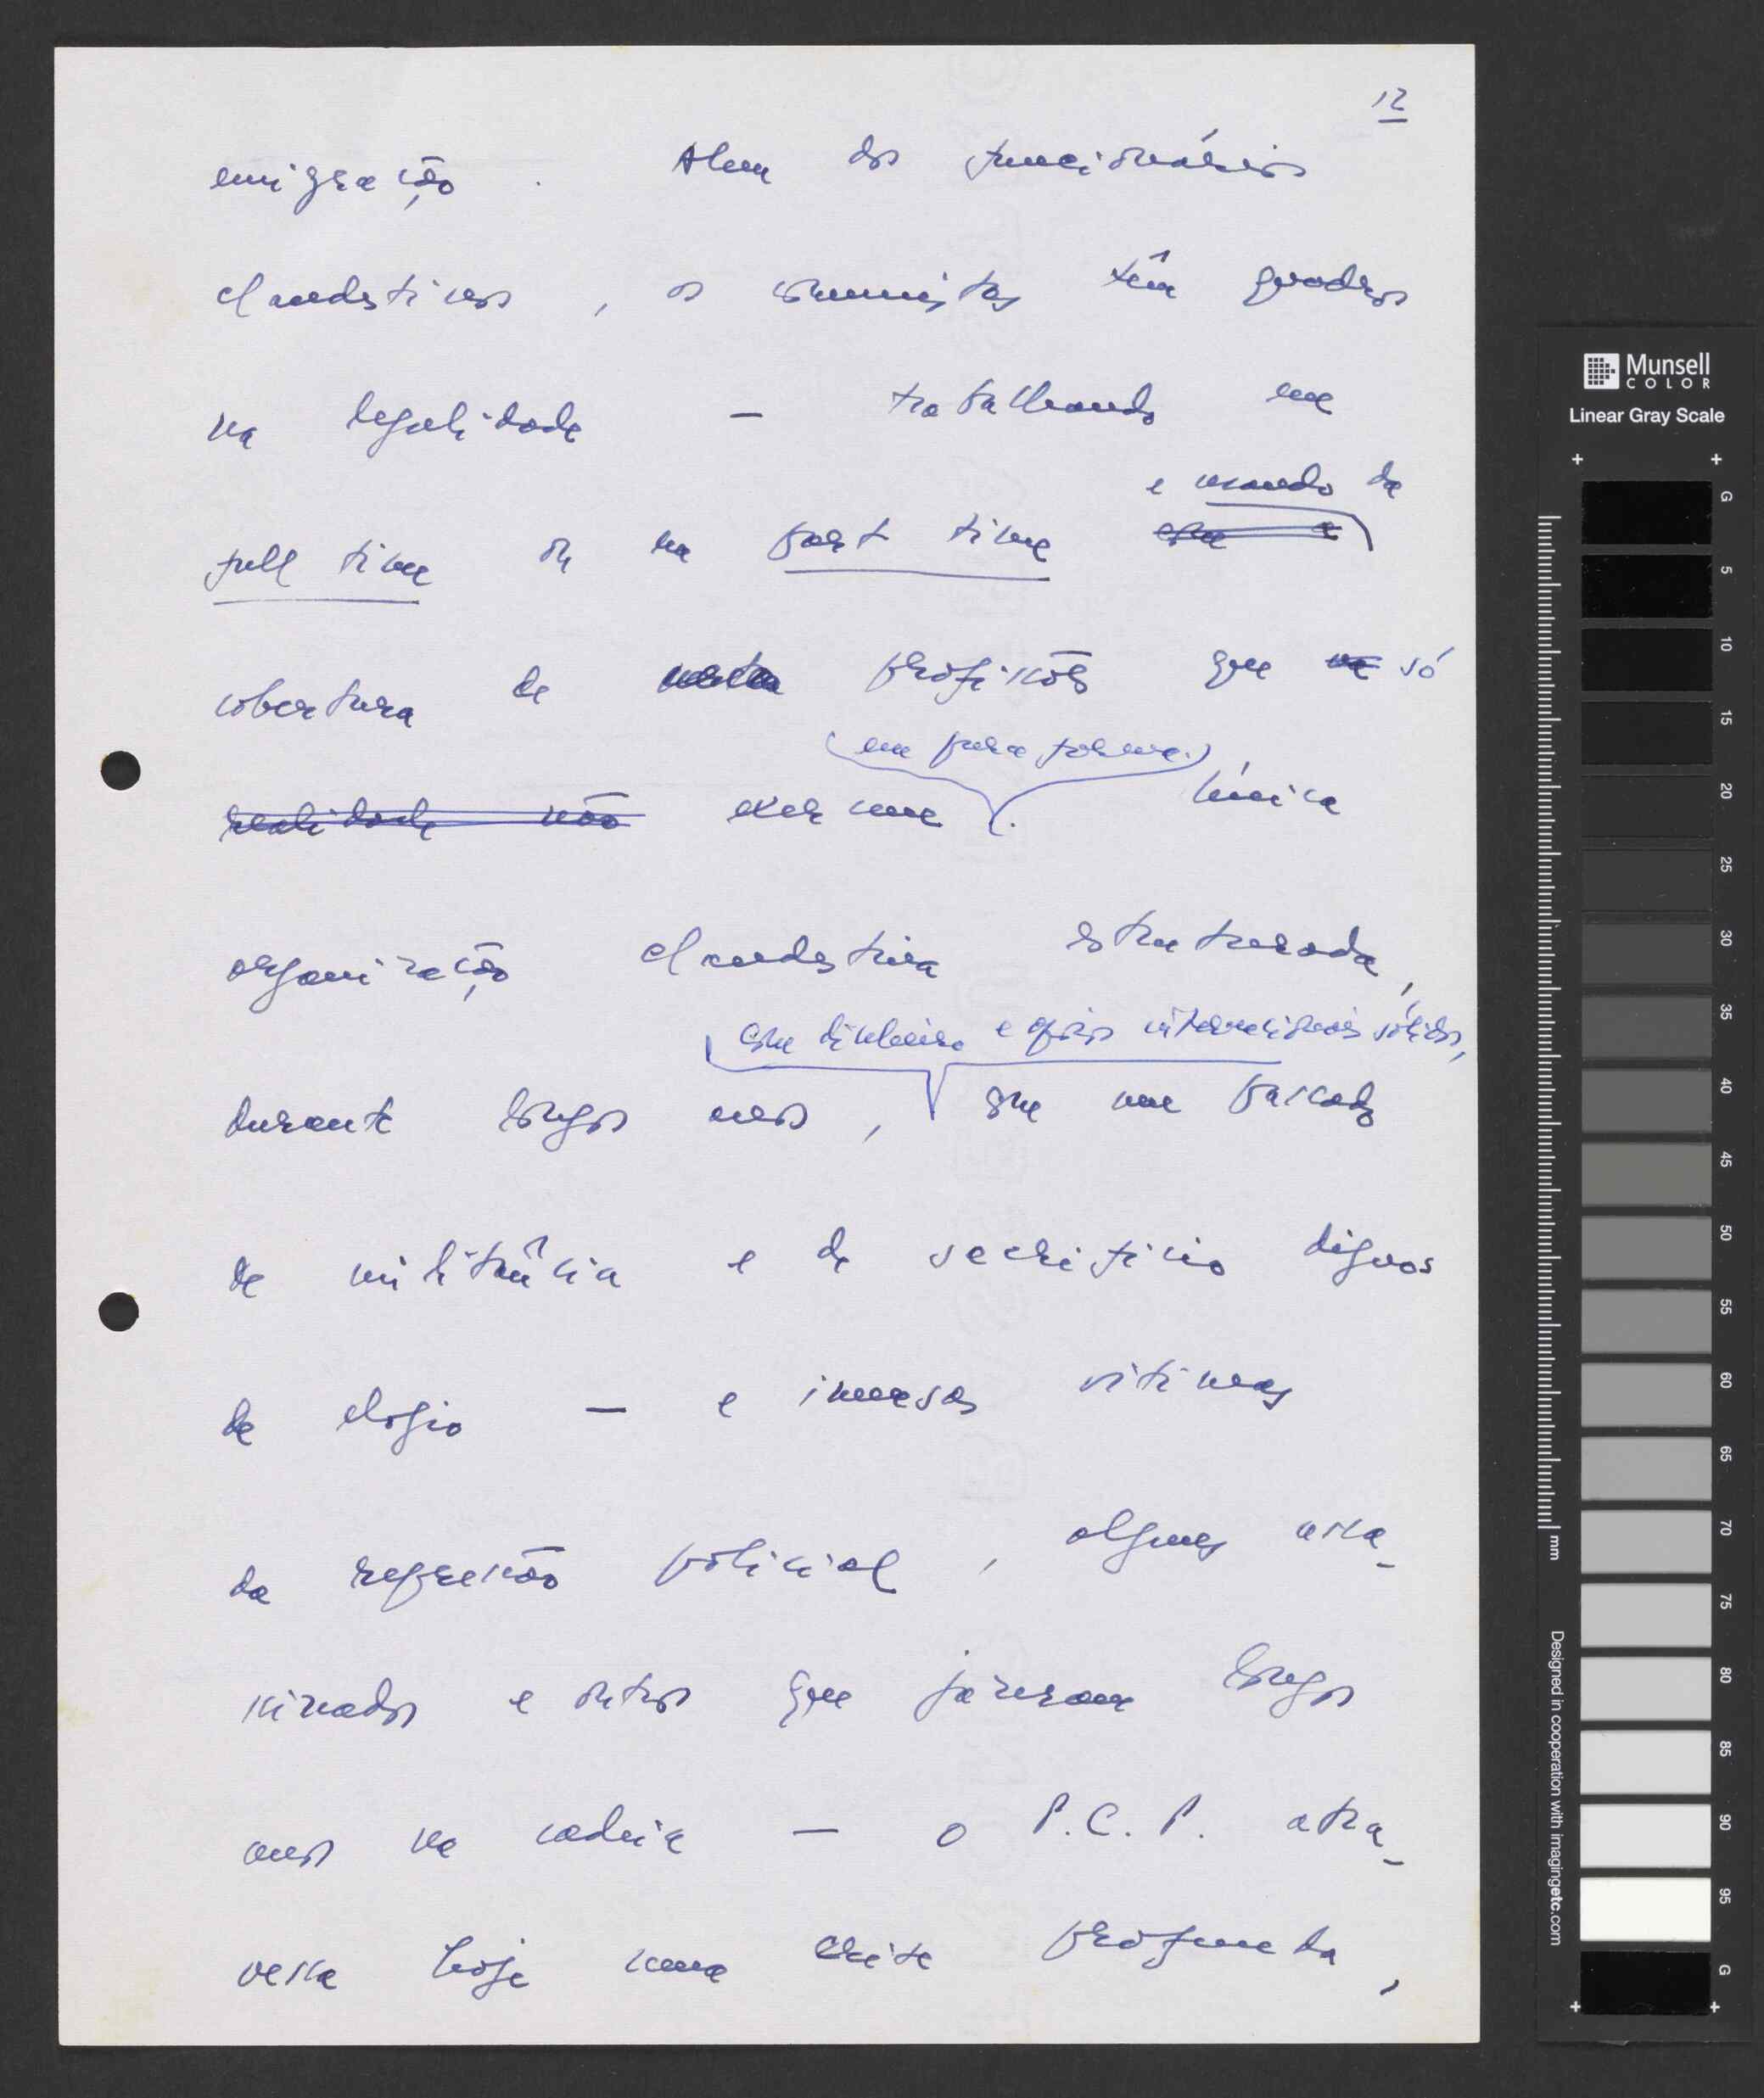 12
emigração. Alem dos funcionários
clandestinos, os comunistas têm quadros
na legalidade — trabalhando em
e usando da
full time ou em part time com a
cobertura de profissões que na só
(em pura forma.)
realidade não exercem. Única
organização clandestina estruturada,
com dinheiro e apoios internacionais sólidos,
durante longos anos, com um passado
de militância e de sacrifício dignos
de elogio — e imensas vitimas
da repressão policial, alguns assa-
sinados e outros que jazeram longos
anos na cadeia — o P.C.P. atra-
vessa hoje uma crise profunda,
Munsell
COLOR
Linear Gray Scale
G
5
10
15
20
25
30
35
40
45
50
55
60
65
70
75
80
85
90
95
G
mm
Designed in cooperation with imagingetc.com